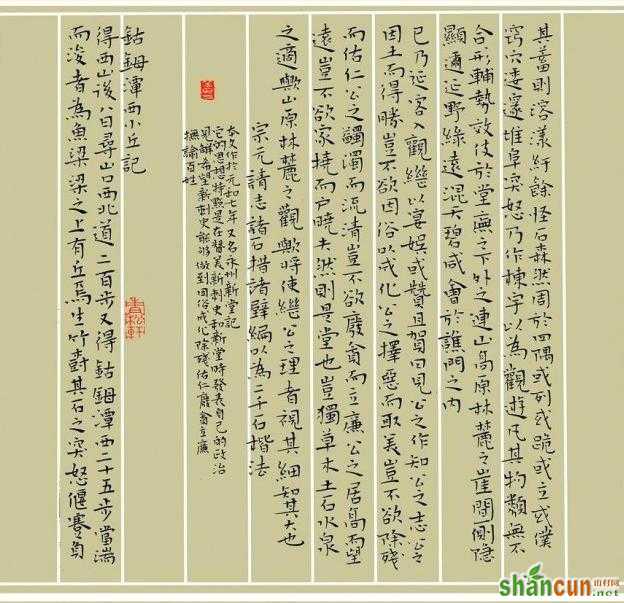 其蓄則溶漾紆餘怪石森然周於四隅或列或跪或立或僕
竅穴逶邃堆阜突怒乃作棟宇以為觀遊凡其物類無不
合形輔勢效伎於堂廡之下外之連山高原林麓之崖間側隱
顯邇延野綠遠混天碧咸會於譙門之內
已乃延客入觀繼以宴娛或贊且賀曰見公之作知公之志公之
因土而得勝豈不欲因俗以成化公之擇惡而取美豈不欲除殘
而佑仁公之蠲濁而流清豈不欲廢貪而立廉公之居高而望
遠豈不欲家撓而戶曉夫然則是堂也豈獨草木土石水泉
之適歟山原林麓之觀歟將使繼公之理者視其細知其大也
宗元請志諸石措諸壁編以為二千石楷法
本文作於元和七年又名永州新堂記
它的思想特點是在贊美新刺史和新堂時發表自己的政治
見解希望新刺史能夠做到因俗成化除殘佑仁廢貪立廉
撫諭百姓
鈷鉧潭西小丘記
得西山後八日尋山口西北道二百步又得鈷鉧潭西二十五步當湍
而浚者為魚梁梁之上有丘焉生竹樹其石之突怒偃蹇負
shancun
山村网
.net